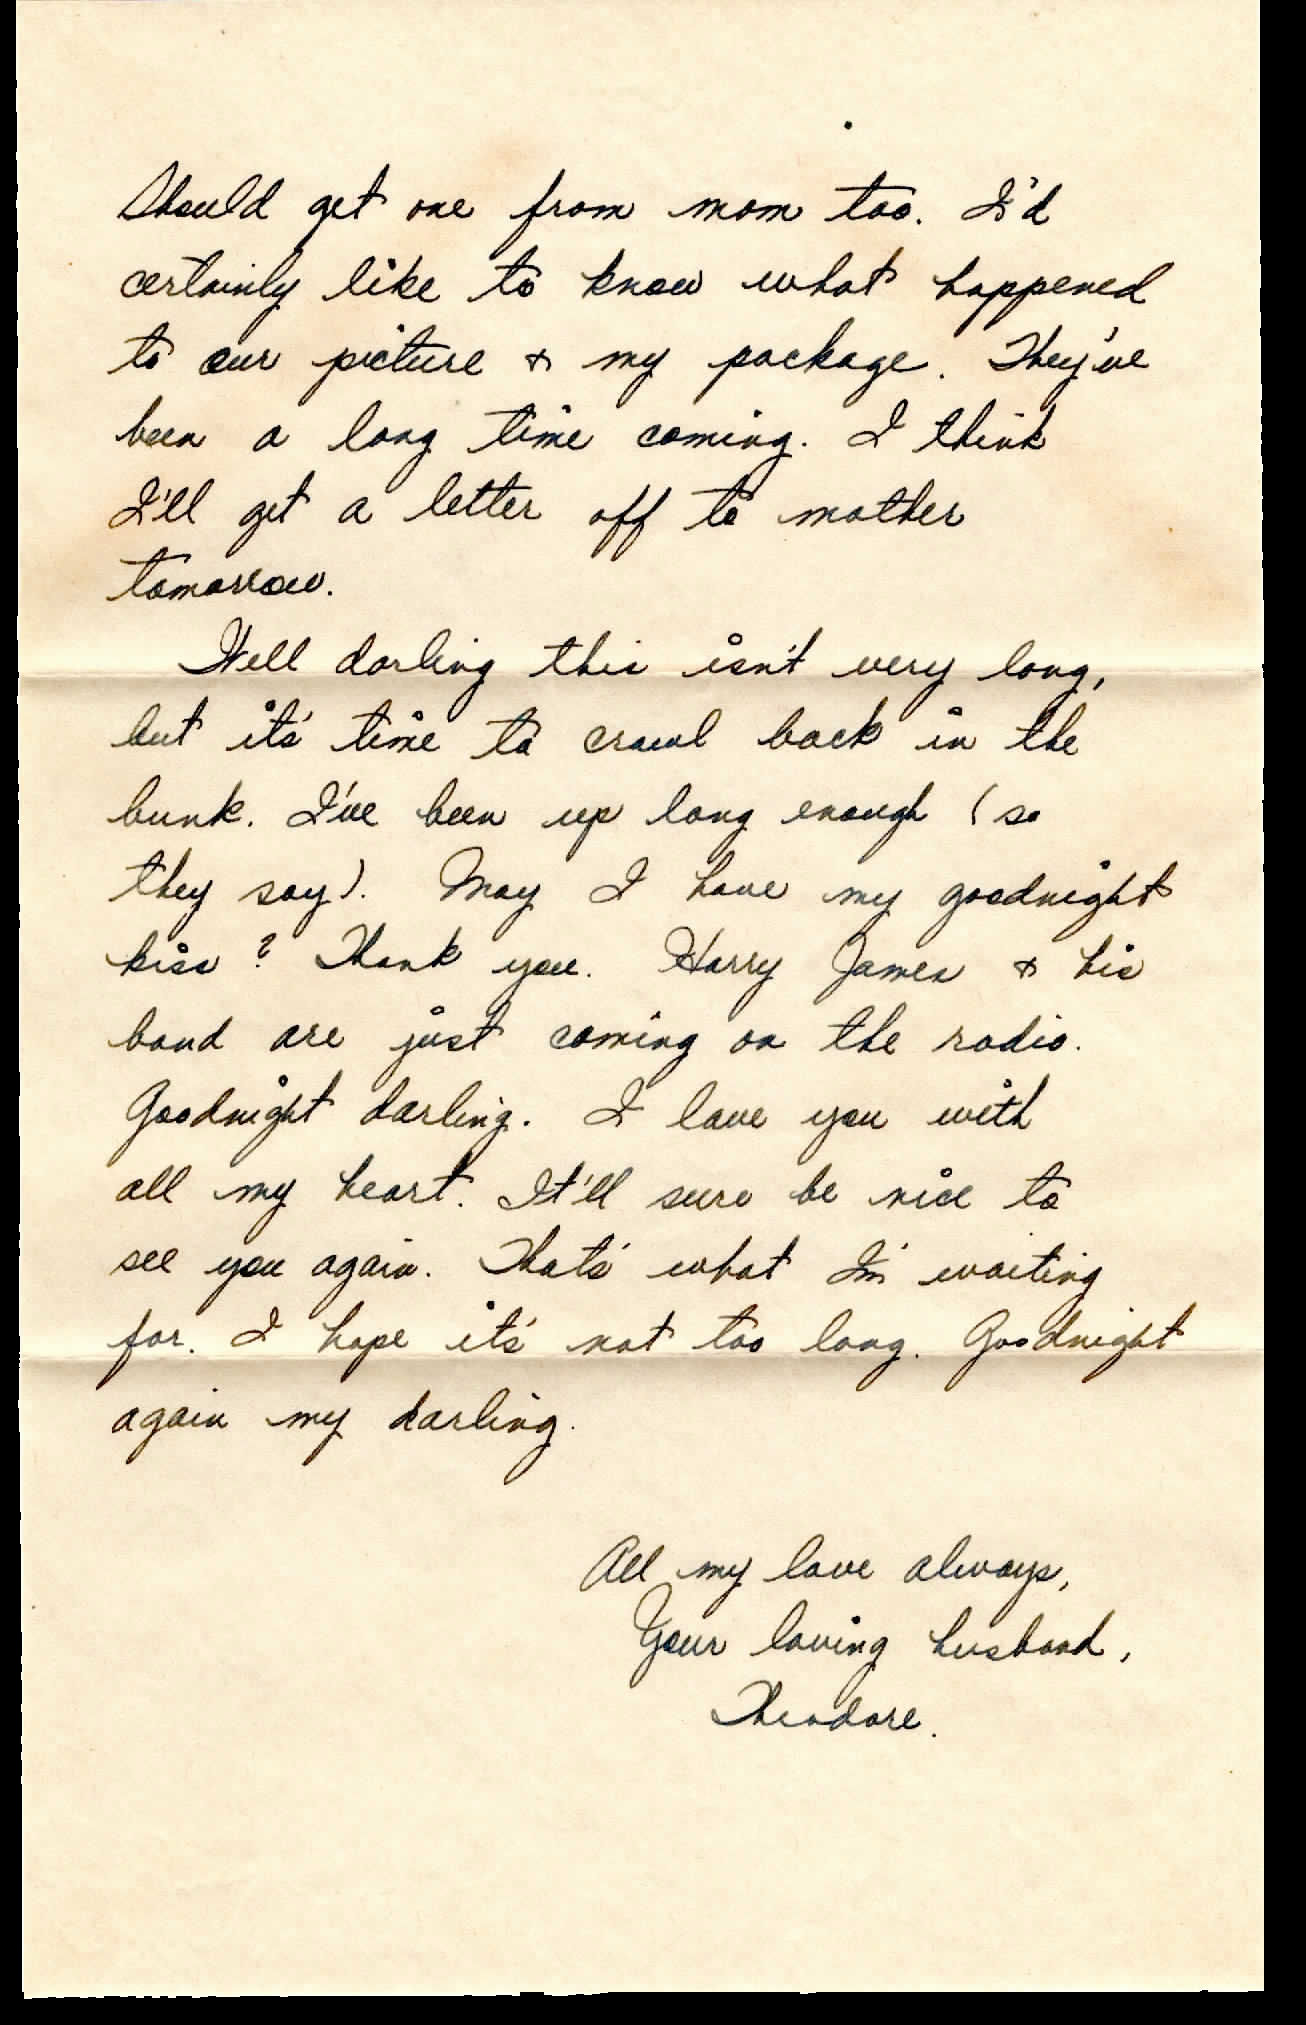 Should get one from mom too. I'd
certainly like to know what happened
to our picture & my package. They've
been a long time coming. I think
I'll get a letter off to mother
tomorrow.
Well darling this isn't very long,
but it's time to crawl back in the
bunk. I've been up long enough (so
they say). May I have my goodnight
kiss? Thank you. Harry James & his
band are just coming on the radio.
Goodnight darling. I love you with
all my heart. It'll sure be nice to
see you again. That's what I'm waiting
for. I hope it's not too long. Goodnight
again my darling.
All my love always,
Your loving husband,
Theodore.